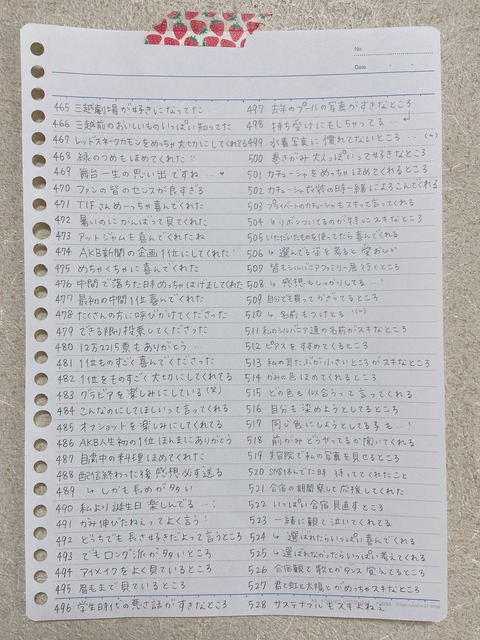 No.
Date
465 三越劇場が好きになってた
466 三越前のおいしいものいっぱい知ってた
467 レッドスネークカモンをめっちゃ大切にしてくれてる
468 緑のつめもほめてくれた!!
469 舞台一生の思い出ですね…♥
470 ファンの皆のセンスが良すぎる
471 TIFさんめーっちゃ喜んでくれた
472 暑いのにがんばって見てくれた
473 アットジャムも喜んでくれたね
474 AKB新聞の企画1位にしてくれた!
475 めちゃくちゃに喜んでくれた
476 中間で落ちた日めっちゃはげましてくれた
477 最初の中間1位喜んでくれた
478 たくさんの方に呼びかけてくれてた
479 できる限り投票してくださった
480 12万2215票もありがとう…
481 1位ものすごく喜んでくださった
482 1位をものすごく大切にしてくれてる
483 グラビアを楽しみにしている(笑)
484 こんなのにしてほしいって言ってくれる
485 オフショットを楽しみにしてくれる
486 AKB人生初の1位ほんまにありがとう
487 自粛中の料理ほめてくれた
488 配信終わった後感想必ず送る
489 ↳しかも長めが多い
490 私より誕生日楽しんでる…!
491 かみ伸びたねぇってよく言う!
492 どっちでも長さ好きだよって言うところ
493 でもロング派が多いところ
494 アイメイクをよく見ているところ
495 眉毛まで見ているところ
496 学生時代の悪さ話がすきなところ
497 去年のプールの写真がすきなところ
498 持ち受けにもしちゃってる…
499 水着写真に慣れてないところ…(^^)
500 巻きがみ大人っぽいって好きなところ
501 カチューシャをめっちゃほめてくれるところ
502 カチューシャお渋の時一緒によろこんでくれる
503 プライベートのカチューシャもスキって言ってくれる
504 ↳リボンついてるのが特にスキなところ
505 いただいたものを使ってたら喜んでくれる
506 ↳選んでる姿を考えると愛おしい
507 皆もシルバニアファミリー展行くところ
508 ↳感想もしっかりしてる…!
509 自分でも買ってかざってるところ
510 ↳名前もつけてる (^^)
511 私のシルバニア達の名前がスキなところ
512 ピアスをすすめてくるところ
513 私の耳たぶが小さいところがスキなところ
514 かみの色ほめてくれるところ
515 どの色も似合うって言ってくれる
516 自分も染めようとしてるところ
517 同じ色にしようとしてる子も…!
518 前がみどうやってるか聞いてくれる
519 美容院で私の写真を見せるところ
520 SNS休んでた時待っててくれたこと
521 合宿の期間察して応援してくれた
522 いっぱい合宿見直すところ
523 一緒に観て泣いてくれてる
524 ↳選ばれたらいっぱい喜んでくれる
525 ↳選ばれなかったらいっぱい考えてくれる
526 合宿観て歌とかダンス覚えてるところ
527 君と虹と太陽とがめっちゃスキなところ
528 サステナブルもスキよねぇ